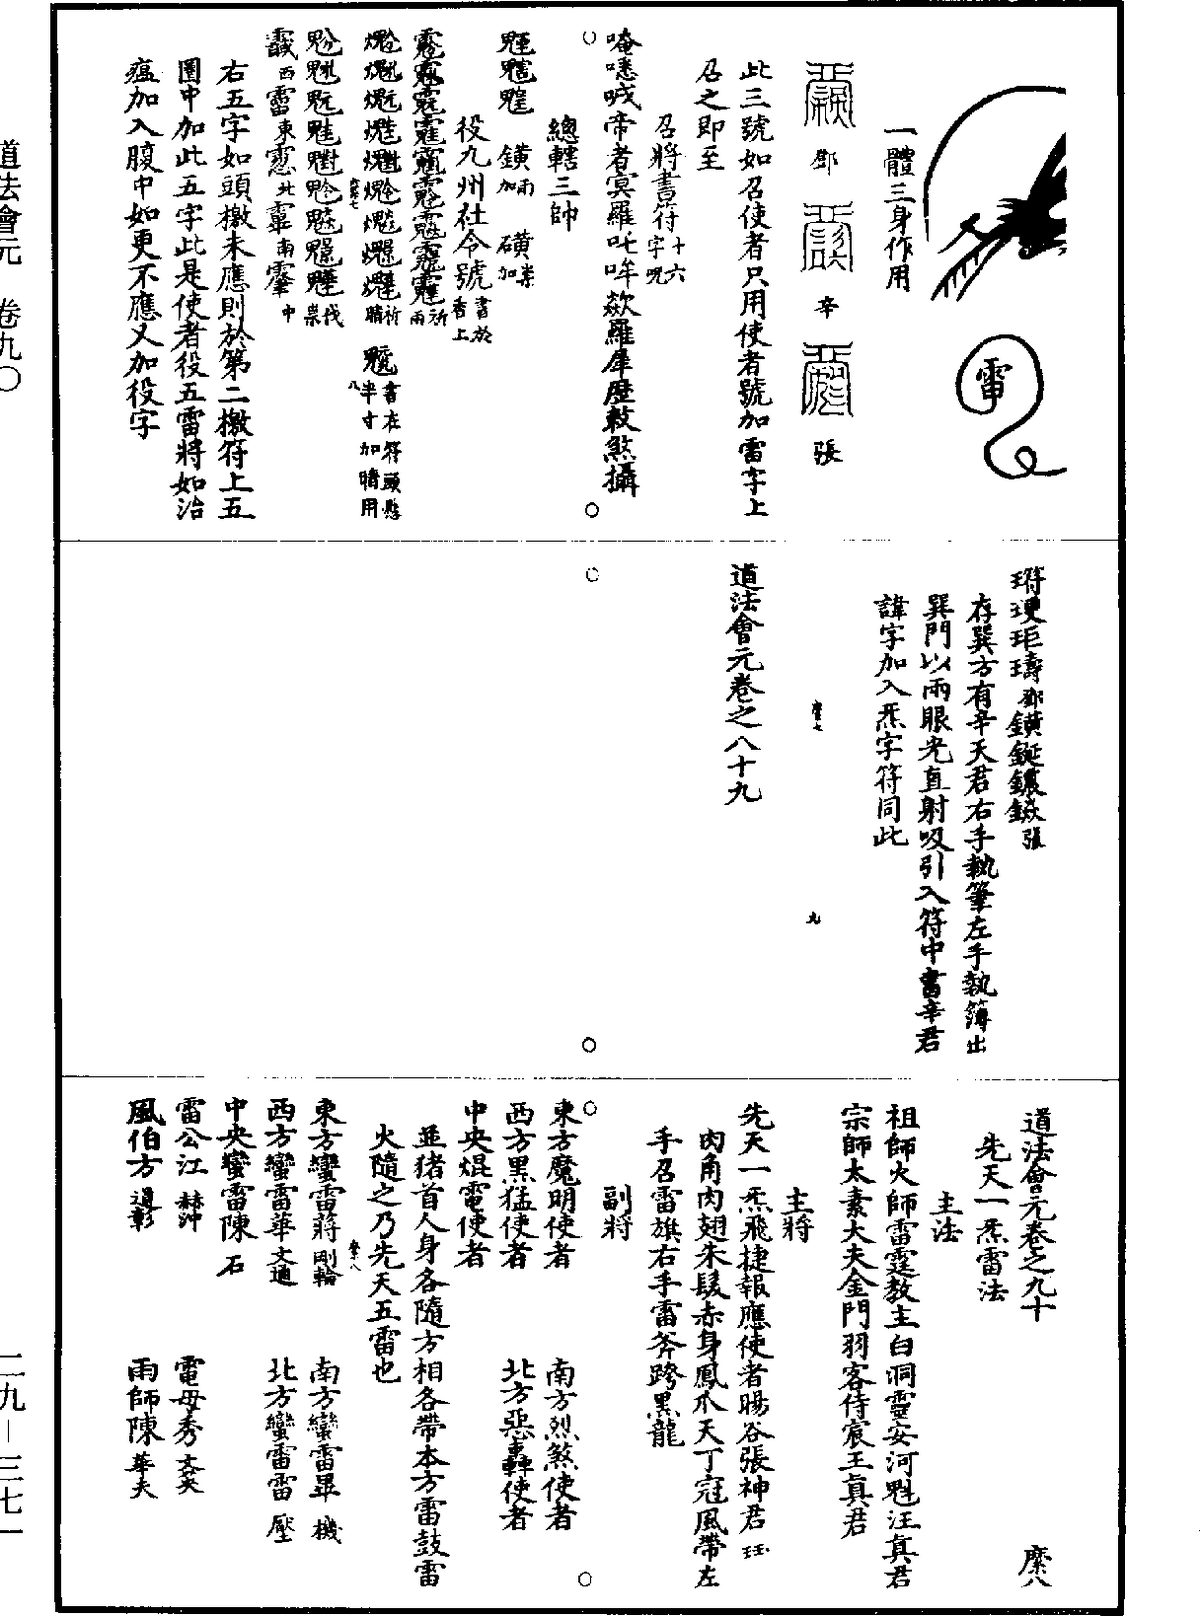 道法會元 卷九〇
二九-三七一
雷
一體三身作用
鄧 辛 張
此三號如召使者只用使者號加雷字上
召之即至
召將書符十六字呪
唵𠹌帝者冥羅吒哞欻羅犀歷敕煞攝
總轄三帥
鐄加雨 磺加祟
役九州社令號書於香上
祈雨
祈晴 書在符頭懸半寸加晴用
伐祟
西雷東 北 南 中
右五字如頭檄未應則於第二檄符上五
圈中加此五字此是使者役五雷將如治
瘟加入腹中如更不應又加役字
鄧 張
存巽方有辛天君右手執筆左手執簿出
巽門以兩眼光直射吸引入符中書辛君
諱字加入炁字符同此
道法會元卷之八十九
九
道法會元卷之九十 縻八
先天一炁雷法
主法
祖師火師雷霆教主白洞靈安河魁汪真君
宗師太素大夫金門羽客侍宸王真君
主將
先天一炁飛捷報應使者暘谷張神君珏
肉角肉翅朱髮赤身鳳爪天丁冠風帶左
手召雷旗右手雷斧跨黑龍
副將
東方魔明使者 南方烈煞使者
西方黑猛使者 北方惡轟使者
中央焜電使者
並猪首人身各隨方相各帶本方雷鼓雷
火隨之乃先天五雷也
東方蠻雷蔣剛輪 南方蠻雷畢機
西方蠻雷華文通 北方蠻雷雷壓
中央蠻雷陳石
雷公江赫沖 電母秀文英
風伯方道彰 雨師陳華夫